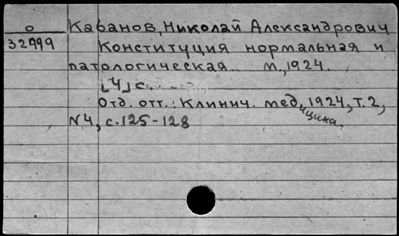 О Кабанов, Николай Александрович
32999 Конституция нормальная и
патологическая М, 1924.
[4] с.
Отд. отт.: Клинич. медицина, 1924, т. 2,
N4, с. 125-128